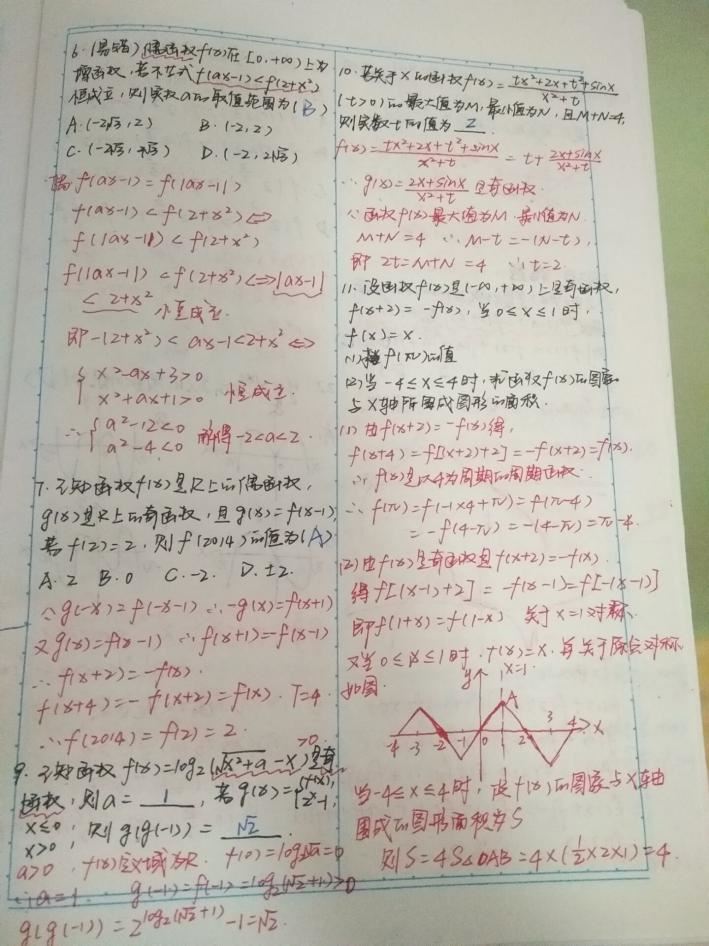 6.(易错)偶函数f(x)在[0,+∞)上为
增函数,若不等式f(ax-1)<f(2+x²)
恒成立,则实数a的取值范围为(B)
A.(-2√3,2) B.(-2,2)
C.(-2√3,2√3) D.(-2,2√3)
偶f(ax-1)=f(|ax-1|)
f(ax-1)<f(2+x²)⇔
f(|ax-1|)<f(2+x²)
f(|ax-1|)<f(2+x²)⇔|ax-1|
<2+x² 恒成立.
即-(2+x²)<ax-1<2+x²⇔
{x²-ax+3>0
x²+ax+1>0 恒成立.
∴{a²-12<0
a²-4<0 解得-2<a<2.
7.已知函数f(x)是R上的偶函数,
g(x)是R上的奇函数,且g(x)=f(x-1)
若f(2)=2,则f(2014)的值为(A)
A.2 B.0 C.-2. D.±2.
∵g(-x)=f(-x-1) ∴-g(x)=f(x+1)
又g(x)=f(x-1) ∴f(x+1)=-f(x-1)
∴f(x+2)=-f(x).
f(x+4)=-f(x+2)=f(x). T=4
∴f(2014)=f(2)=2.
>0
9.已知函数f(x)=log₂(√x²+a-x)是奇
函数,则a=1,若g(x)={f(x),
2ˣ-1,
x≤0,
x>0, 则g(g(-1))=√2.
a>0,f(x)定义域为R. f(0)=log₂√a=0
∴a=1. g(-1)=f(-1)=log₂(√2+1)>0
g(g(-1))=2^log₂(√2+1)-1=√2.
10.若关于x的函数f(x)=(tx²+2x+t²+sinx)/(x²+t)
(t>0)的最大值为M,最小值为N,且M+N=4,
则实数t的值为2.
f(x)=(tx²+2x+t²+sinx)/(x²+t)=t+(2x+sinx)/(x²+t)
∴g(x)=(2x+sinx)/(x²+t)是奇函数.
∵函数f(x)最大值为M.最小值为N.
M+N=4 ∴M-t=-(N-t),
即2t=M+N=4 ∴t=2.
11.设函数f(x)是(-∞,+∞)上是奇函数,
f(x+2)=-f(x),当0≤x≤1时,
f(x)=x.
(1)求f(π)的值
(2)当-4≤x≤4时,求函数f(x)的图象
与x轴所围成图形的面积.
(1)由f(x+2)=-f(x)得,
f(x+4)=f[(x+2)+2]=-f(x+2)=f(x).
∴f(x)是以4为周期的周期函数.
∴f(π)=f(-1×4+π)=f(π-4)
=-f(4-π)=-(4-π)=π-4.
(2)由f(x)是奇函数且f(x+2)=-f(x).
得f[(x-1)+2]=-f(x-1)=f[-(x-1)]
即f(1+x)=f(1-x) 关于x=1对称.
又当0≤x≤1时.f(x)=x.且关于原点对称
如图.
y x=1.
A
-4 -3 -2 -1 0 1 2 3 4 x
当-4≤x≤4时,设f(x)的图象与x轴
围成的图形面积为S
则S=4S△OAB=4×(½×2×1)=4.